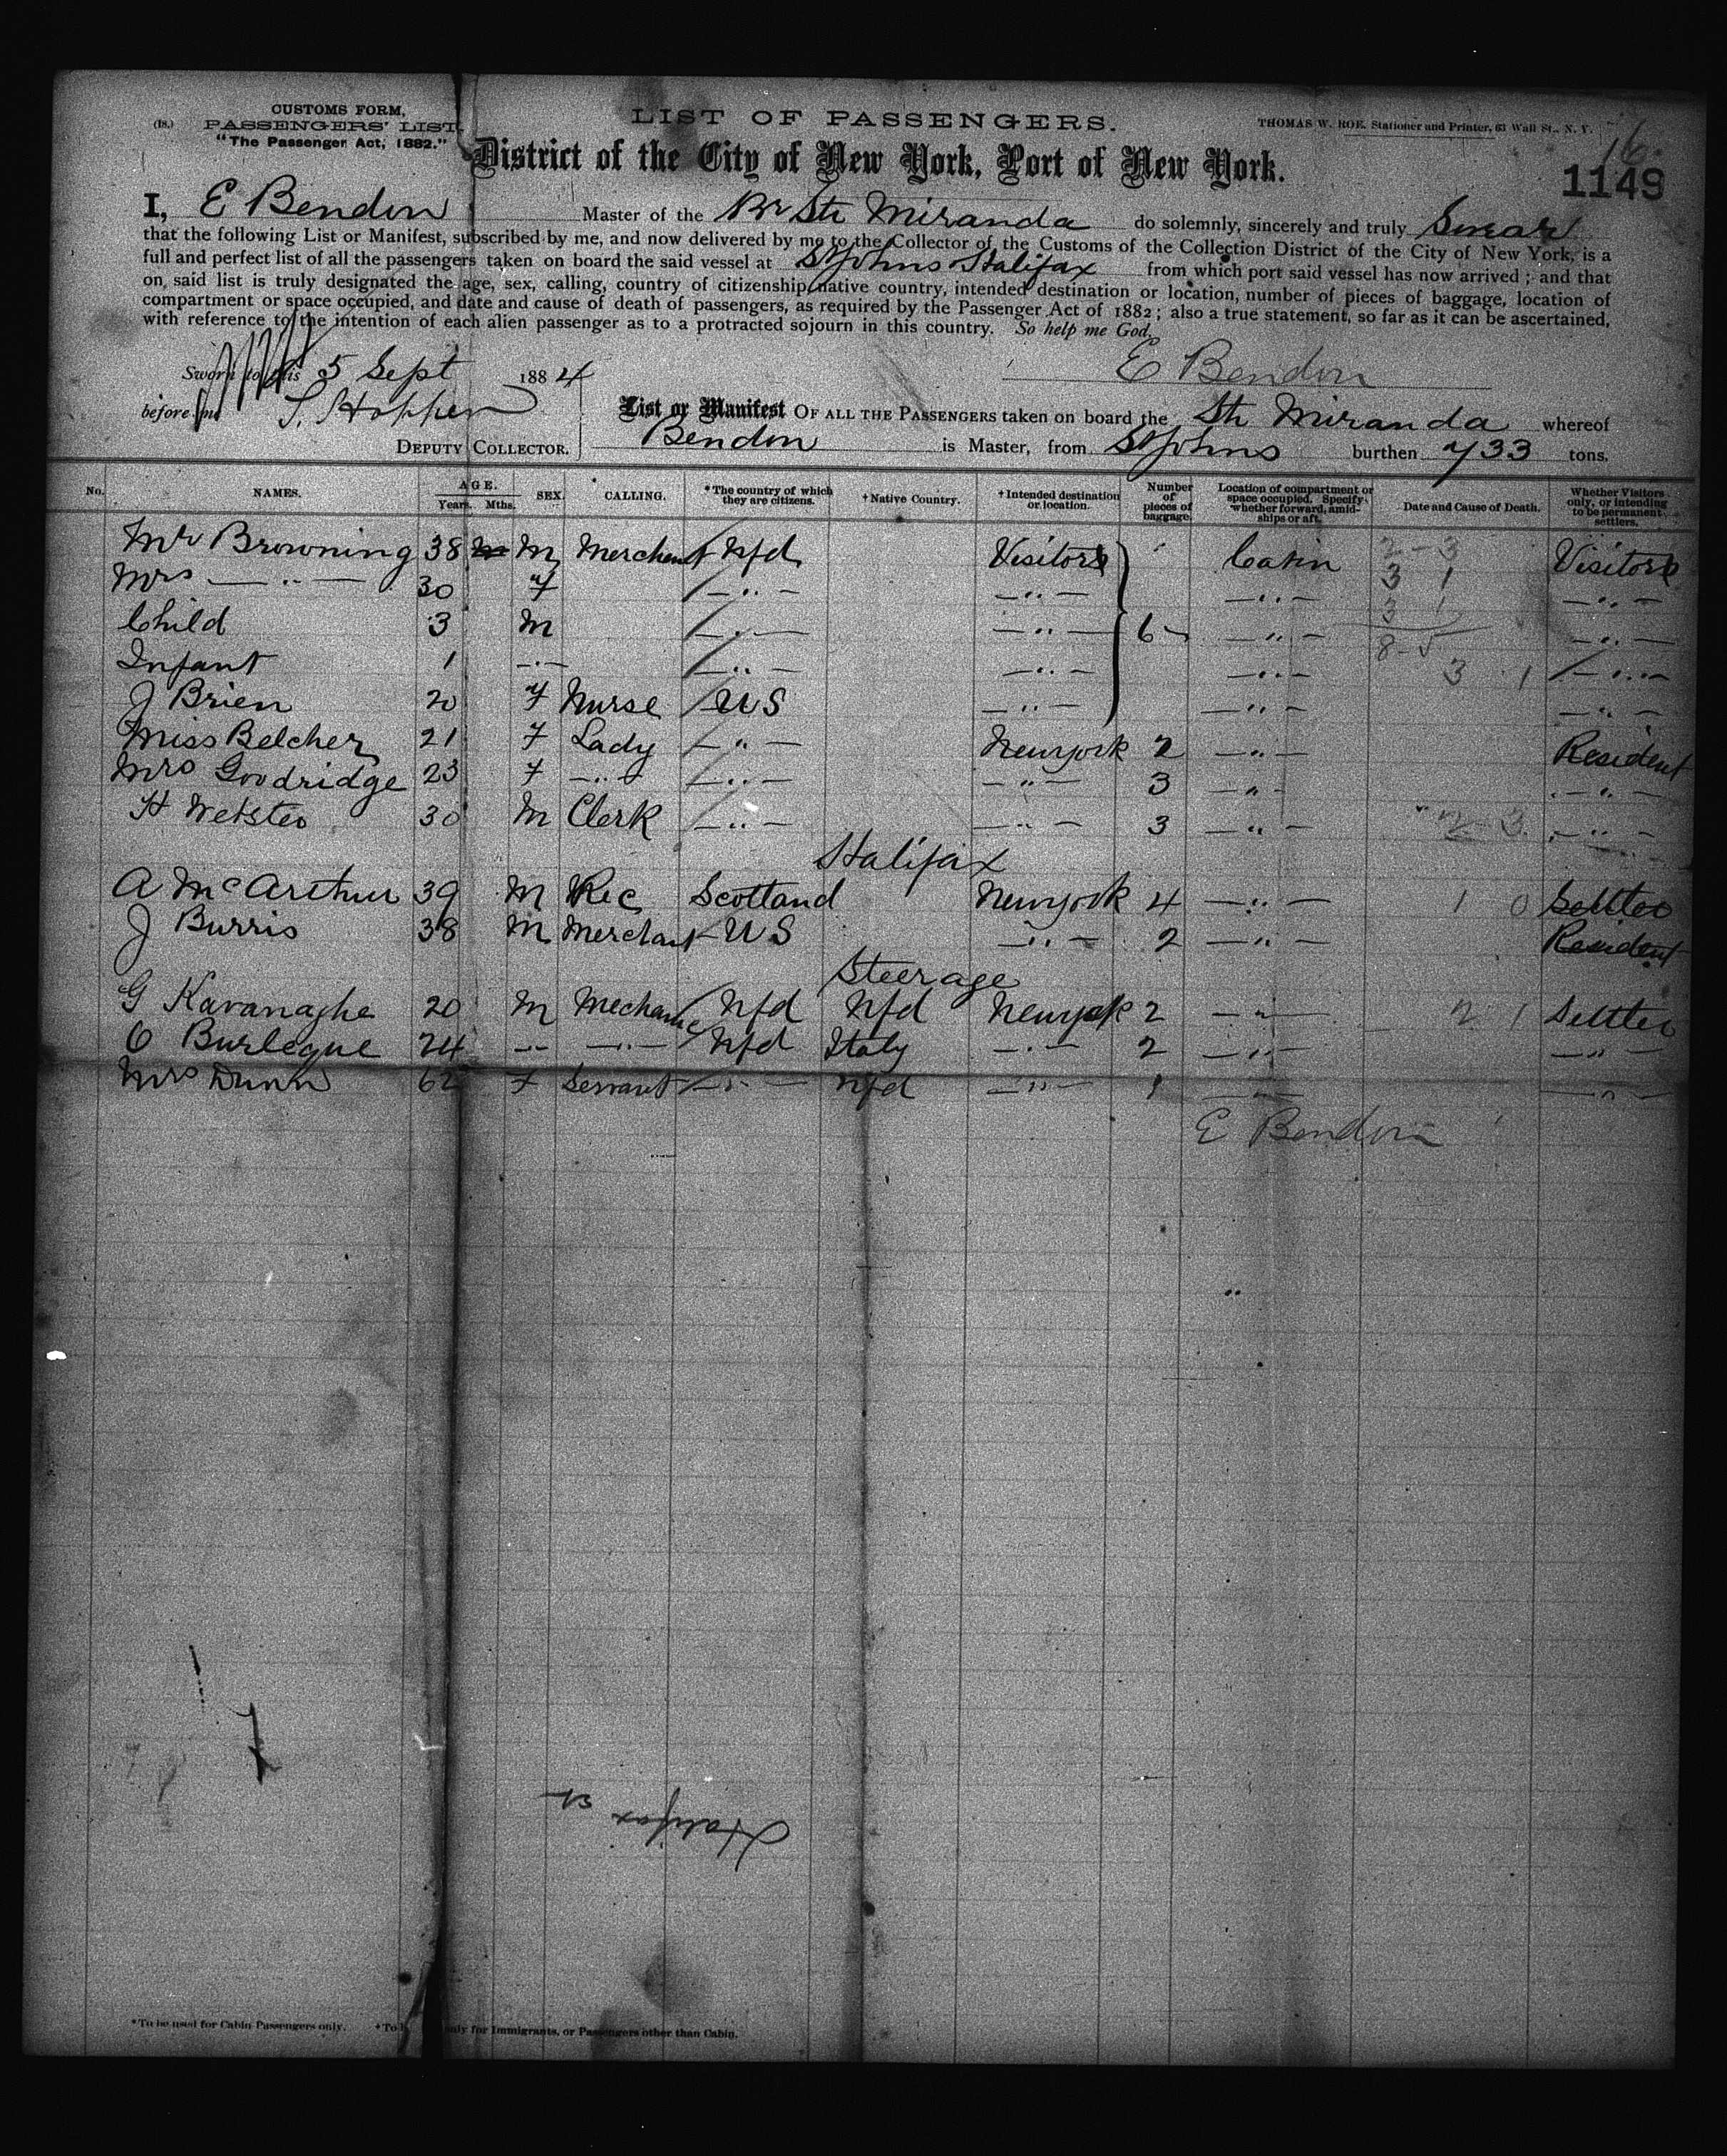 CUSTOMS FORM,
(18.) PASSENGERS' LIST.
"The Passenger Act, 1882."
LIST OF PASSENGERS.
THOMAS W. ROE, Stationer and Printer, 63 Wall St., N. Y.
16
District of the City of New York, Port of New York.
1149
I, E Bendon Master of the Br Str Miranda do solemnly, sincerely and truly Swear
that the following List or Manifest, subscribed by me, and now delivered by me to the Collector of the Customs of the Collection District of the City of New York, is a
full and perfect list of all the passengers taken on board the said vessel at St Johns Halifax from which port said vessel has now arrived; and that
on said list is truly designated the age, sex, calling, country of citizenship, native country, intended destination or location, number of pieces of baggage, location of
compartment or space occupied, and date and cause of death of passengers, as required by the Passenger Act of 1882; also a true statement, so far as it can be ascertained,
with reference to the intention of each alien passenger as to a protracted sojourn in this country. So help me God.
Sworn to this 5 Sept 1884 E Bendon
before me S. Hopper
DEPUTY COLLECTOR.
List or Manifest OF ALL THE PASSENGERS taken on board the Str Miranda whereof
Bendon is Master, from St Johns burthen 733 tons.
No. NAMES. AGE. Years. Mths. SEX. CALLING. *The country of which they are citizens. †Native Country. †Intended destination or location. Number of pieces of baggage. Location of compartment or space occupied. Specify whether forward, amidships or aft. Date and Cause of Death. Whether Visitors only, or intending to be permanent settlers.
Mr Browning 38 M Merchant Nfd Visitors Cabin 2-3 Visitors
Mrs —"— 30 f —"— —"— —"— 3 1 —"—
Child 3 M —"— —"— 6 —"— 3 1 —"—
Infant 1 —"— —"— —"— —"— 8-5 3 1 —"—
J Brien 20 f Nurse US —"— —"— —"—
Miss Belcher 21 f Lady —"— Newyork 2 —"— Resident
Mrs Goodridge 23 f —"— —"— —"— 3 —"— —"—
H Webster 30 M Clerk —"— —"— 3 —"— 2 3 —"—
Halifax
A McArthur 39 M Scotland Newyork 4 —"— 1 0 Settler
J Burris 38 M Merchant US —"— 2 —"— Resident
Steerage
G Kavanaghe 20 M Mechanic Nfd Nfd Newyork 2 —"— 2 1 Settler
O Burlegue 24 —"— —"— Nfd Italy —"— 2 —"— —"—
Mrs Dunn 62 f Servant —"— Nfd —"— 1 —"— —"—
E Bendon
Halifax
*To be used for Cabin Passengers only. †To only for Immigrants, or Passengers other than Cabin.